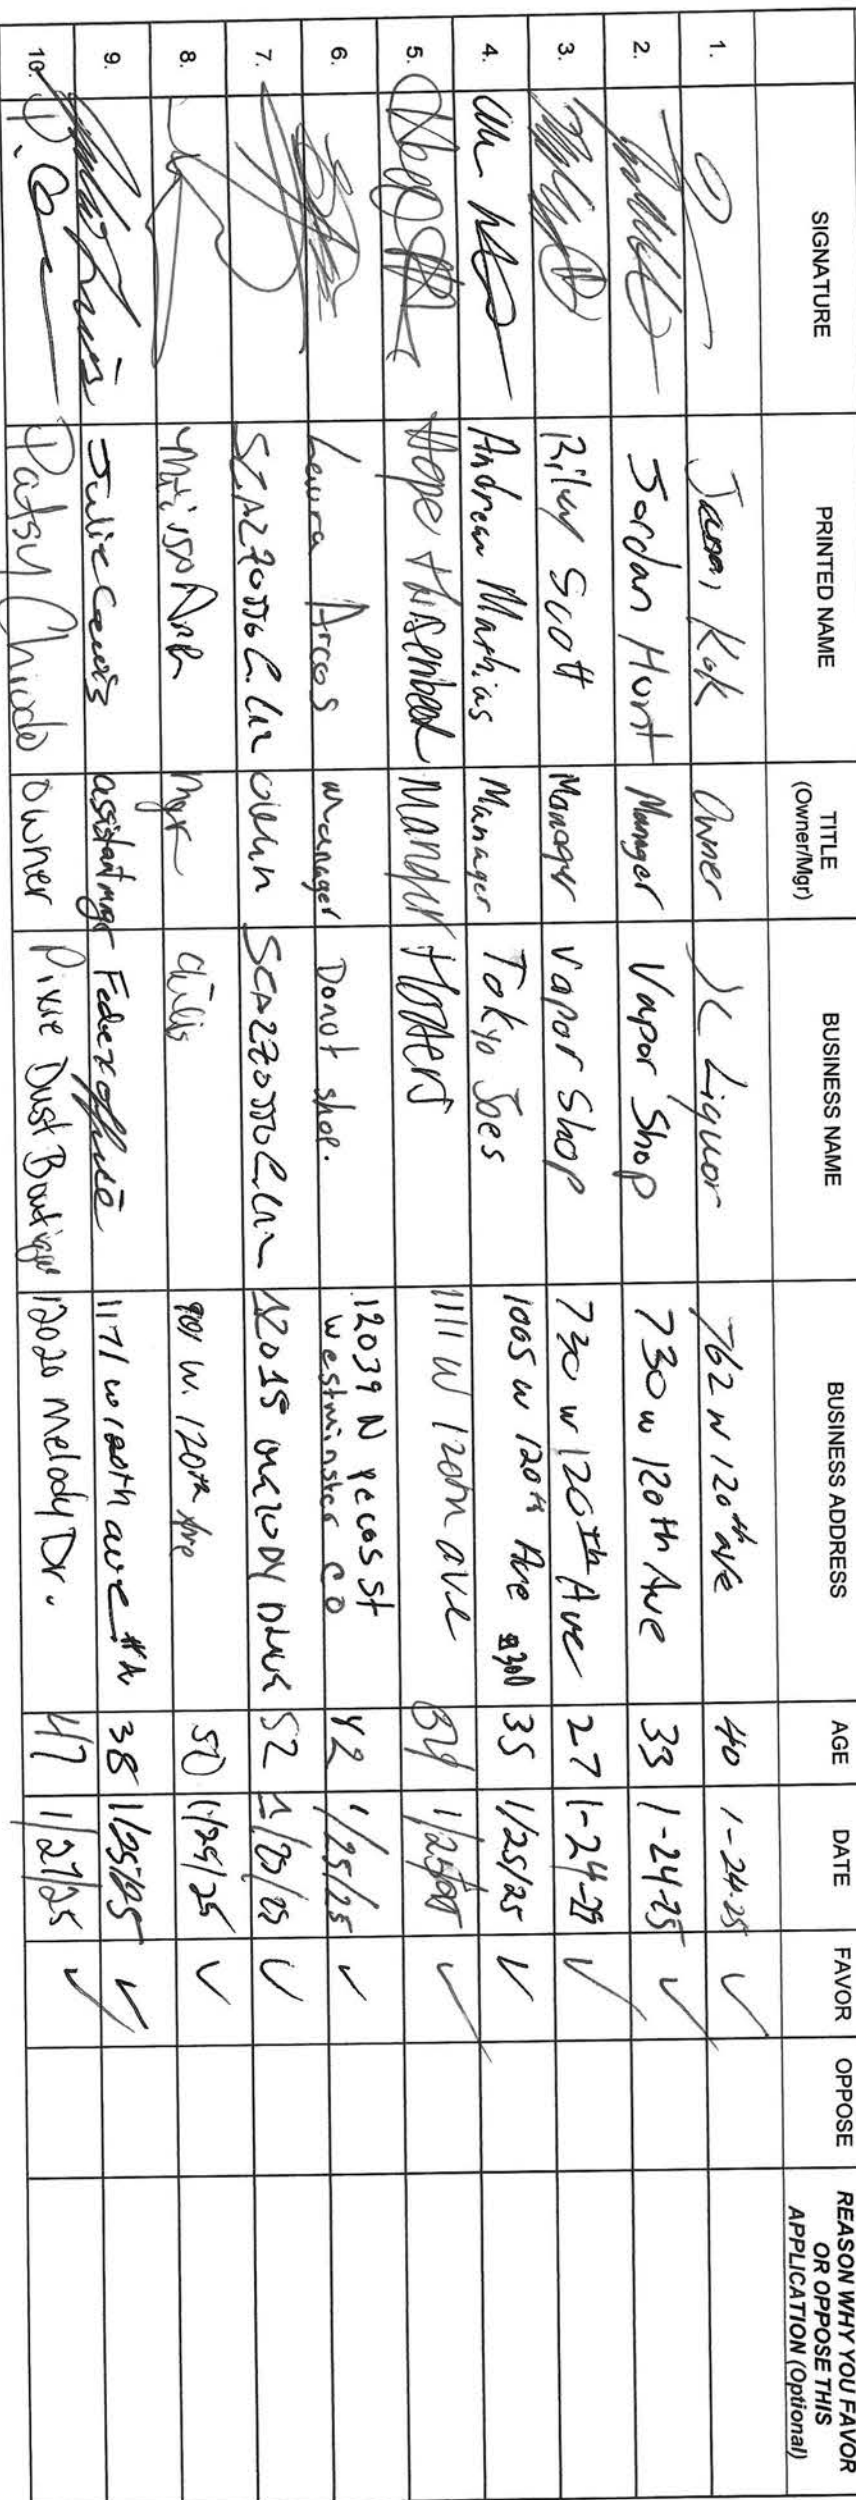 SIGNATURE PRINTED NAME TITLE (Owner/Mgr) BUSINESS NAME BUSINESS ADDRESS AGE DATE FAVOR OPPOSE REASON WHY YOU FAVOR OR OPPOSE THIS APPLICATION (Optional)
1. Kok Owner Liquor 762 W 120th ave 40 1-24-25 ✓
2. Jordan Hunt Manager Vapor Shop 730 w 120th Ave 33 1-24-25 ✓
3. Riley Scott Manager Vapor Shop 730 w 120th Ave 27 1-24-25 ✓
4. Andrew Mathias Manager Tokyo Joes 1005 w 120th Ave 35 1/25/25 ✓
5. Hope Manager Hooters 1111 W 120th ave 34 ✓
6. Laura Arcos manager Donut shop. 12039 N pecos st
westminster co 42 1/25/25 ✓
7. 12015 52 ✓
8. Mgr chilis 901 W. 120th Ave 50 1/25/25 ✓
9. Julie Lewis assistant mngr Fedex office 1171 w 120th ave #A 38 1/25/25 ✓
10. P. Co Patsy Chiodo owner Pixie Dust Boutique 12020 Melody Dr. 47 1/27/25 ✓